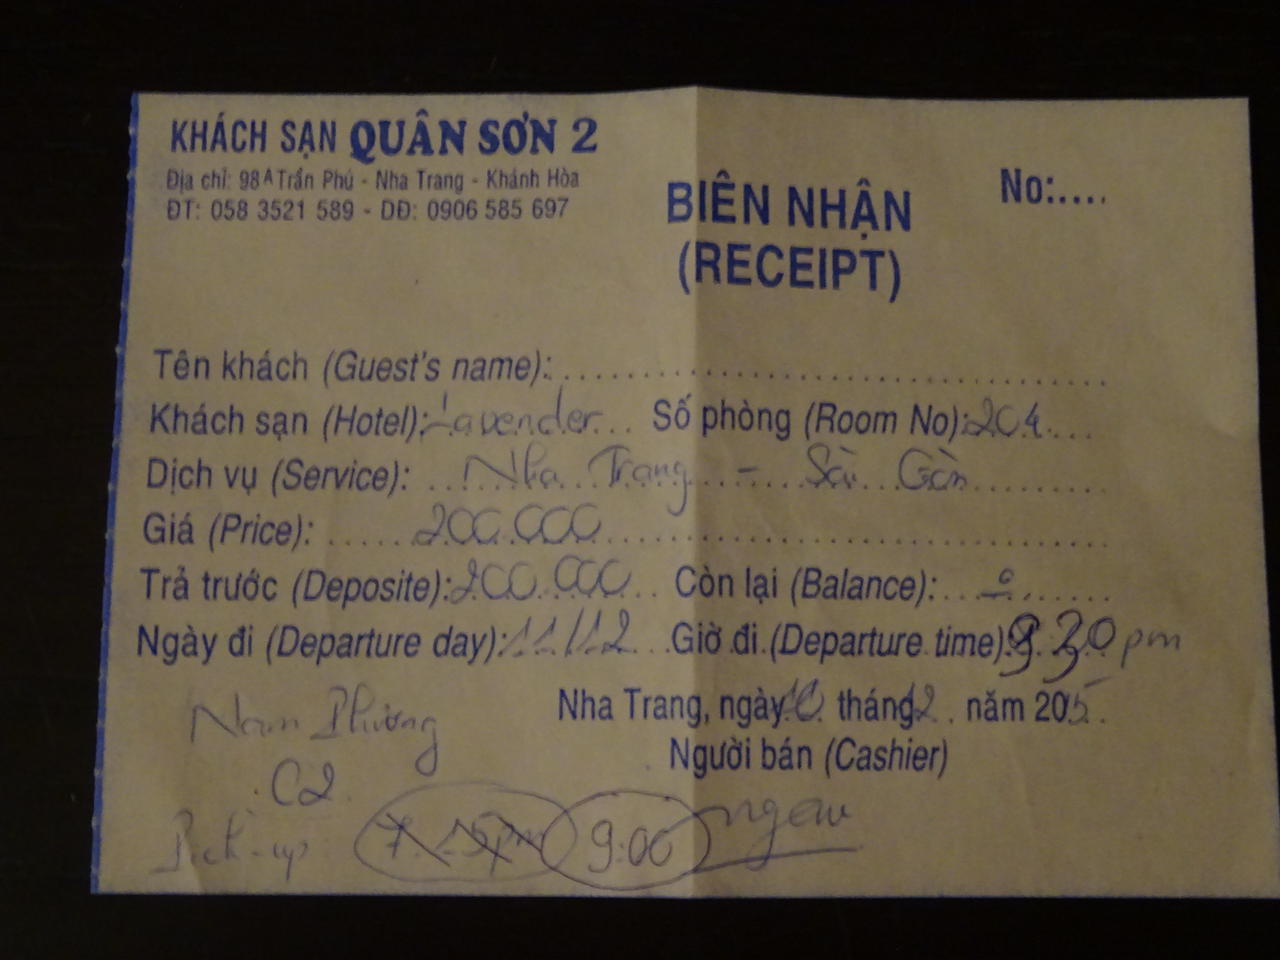 KHÁCH SẠN QUÂN SƠN 2
Địa chỉ: 98A Trần Phú - Nha Trang - Khánh Hòa
ĐT: 058 3521 589 - DĐ: 0906 585 697
BIÊN NHẬN
(RECEIPT)
No:....
Tên khách (Guest's name):
Khách sạn (Hotel): Lavender Số phòng (Room No): 204
Dịch vụ (Service): Nha Trang - Sài Gòn
Giá (Price): 200.000
Trả trước (Deposite): 200.000 Còn lại (Balance): 0
Ngày đi (Departure day): 11/12 Giờ đi (Departure time): 9.30 pm
Nha Trang, ngày 10 tháng 12 năm 2015
Người bán (Cashier)
Nam Phương
C2
Pick-up: 7.15pm 9:00